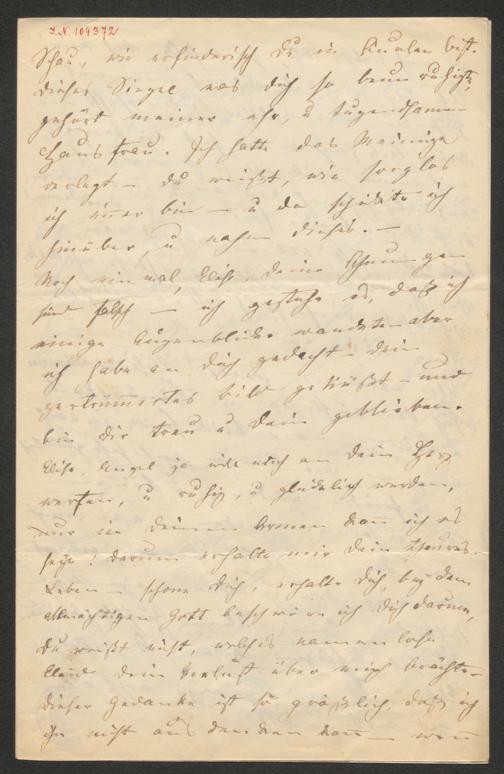 I.N. 104372
Schau, wie erfinderisch du in Qualen bist.
dieses Siegel was dich so beunruhigte,
gehört meiner ehr, u tugendsamen
Hausfrau. Ich hatte das Meinige
verlegt – du weißt, wie sorglos
ich immer bin – u da schickte ich
hinüber, u nahm dieses. –
Noch einmal, Elise, deine
sind falsch – ich gestehe es, daß ich
einige Augenblicke wankte – aber
ich habe an dich gedacht – dein
zertrümmertes Bild geküßt – und
bin dir treu u dein geblieben.
Elise, Engel ja ich an dein Herz
werfen, u ruhig, u glücklich werden,
nur in deinen Armen kan ich es
seyn! darum erhalte mir dein theures
Leben – schone dich, erhalte dich, bey dem
allmächtigen Gott beschwöre ich dich darum,
du weißt nicht, welches namenlose
Elend dein Verlust über mich brächte –
dieser Gedanke ist so gräßlich, daß ich
ihn nicht aus denken kan – wenn